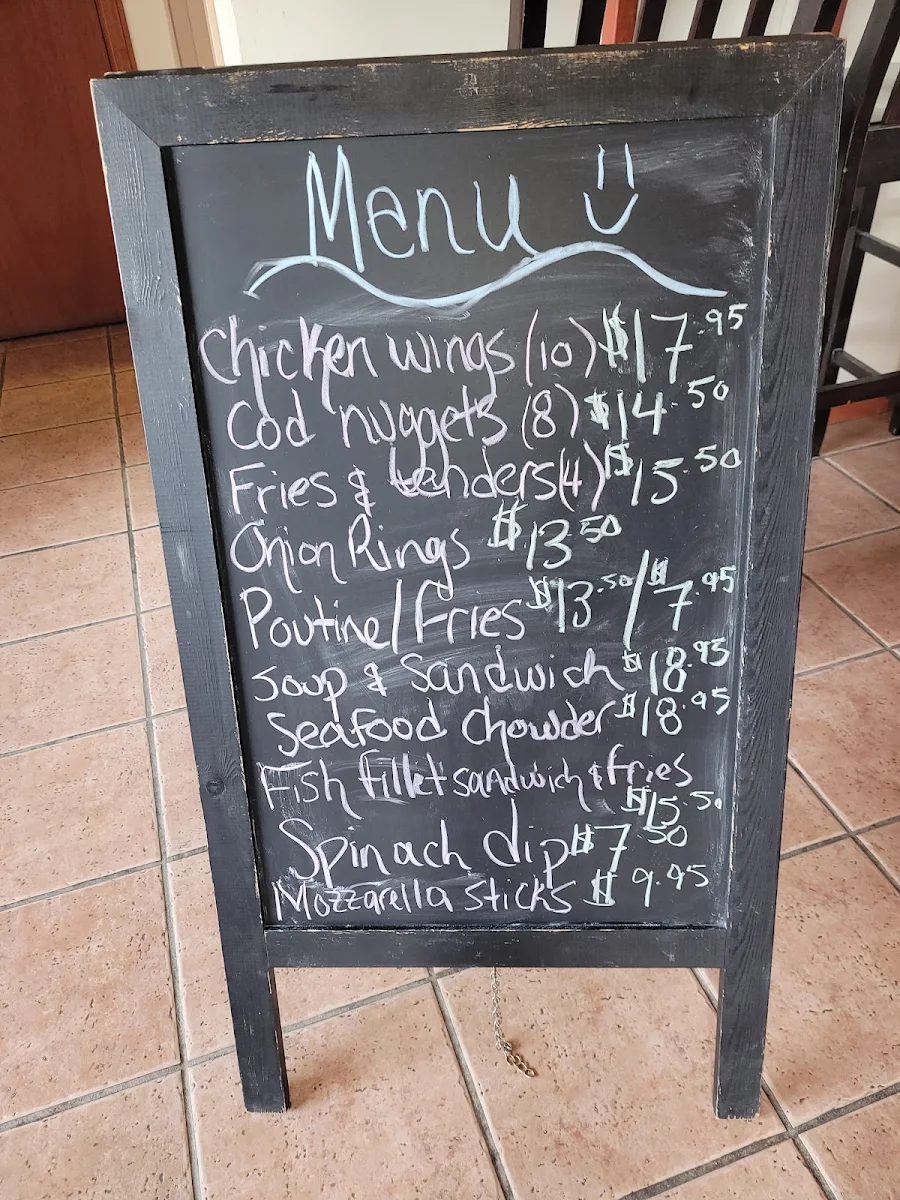 Menu
Chicken wings (10) $17.95
Cod nuggets (8) $14.50
Fries & tenders (4) $15.50
Onion Rings $13.50
Poutine/Fries $13.50/$7.95
Soup & Sandwich $18.95
Seafood Chowder $18.95
Fish fillet sandwich & fries
$15.50
Spinach dip $7.50
Mozzarella sticks $9.95